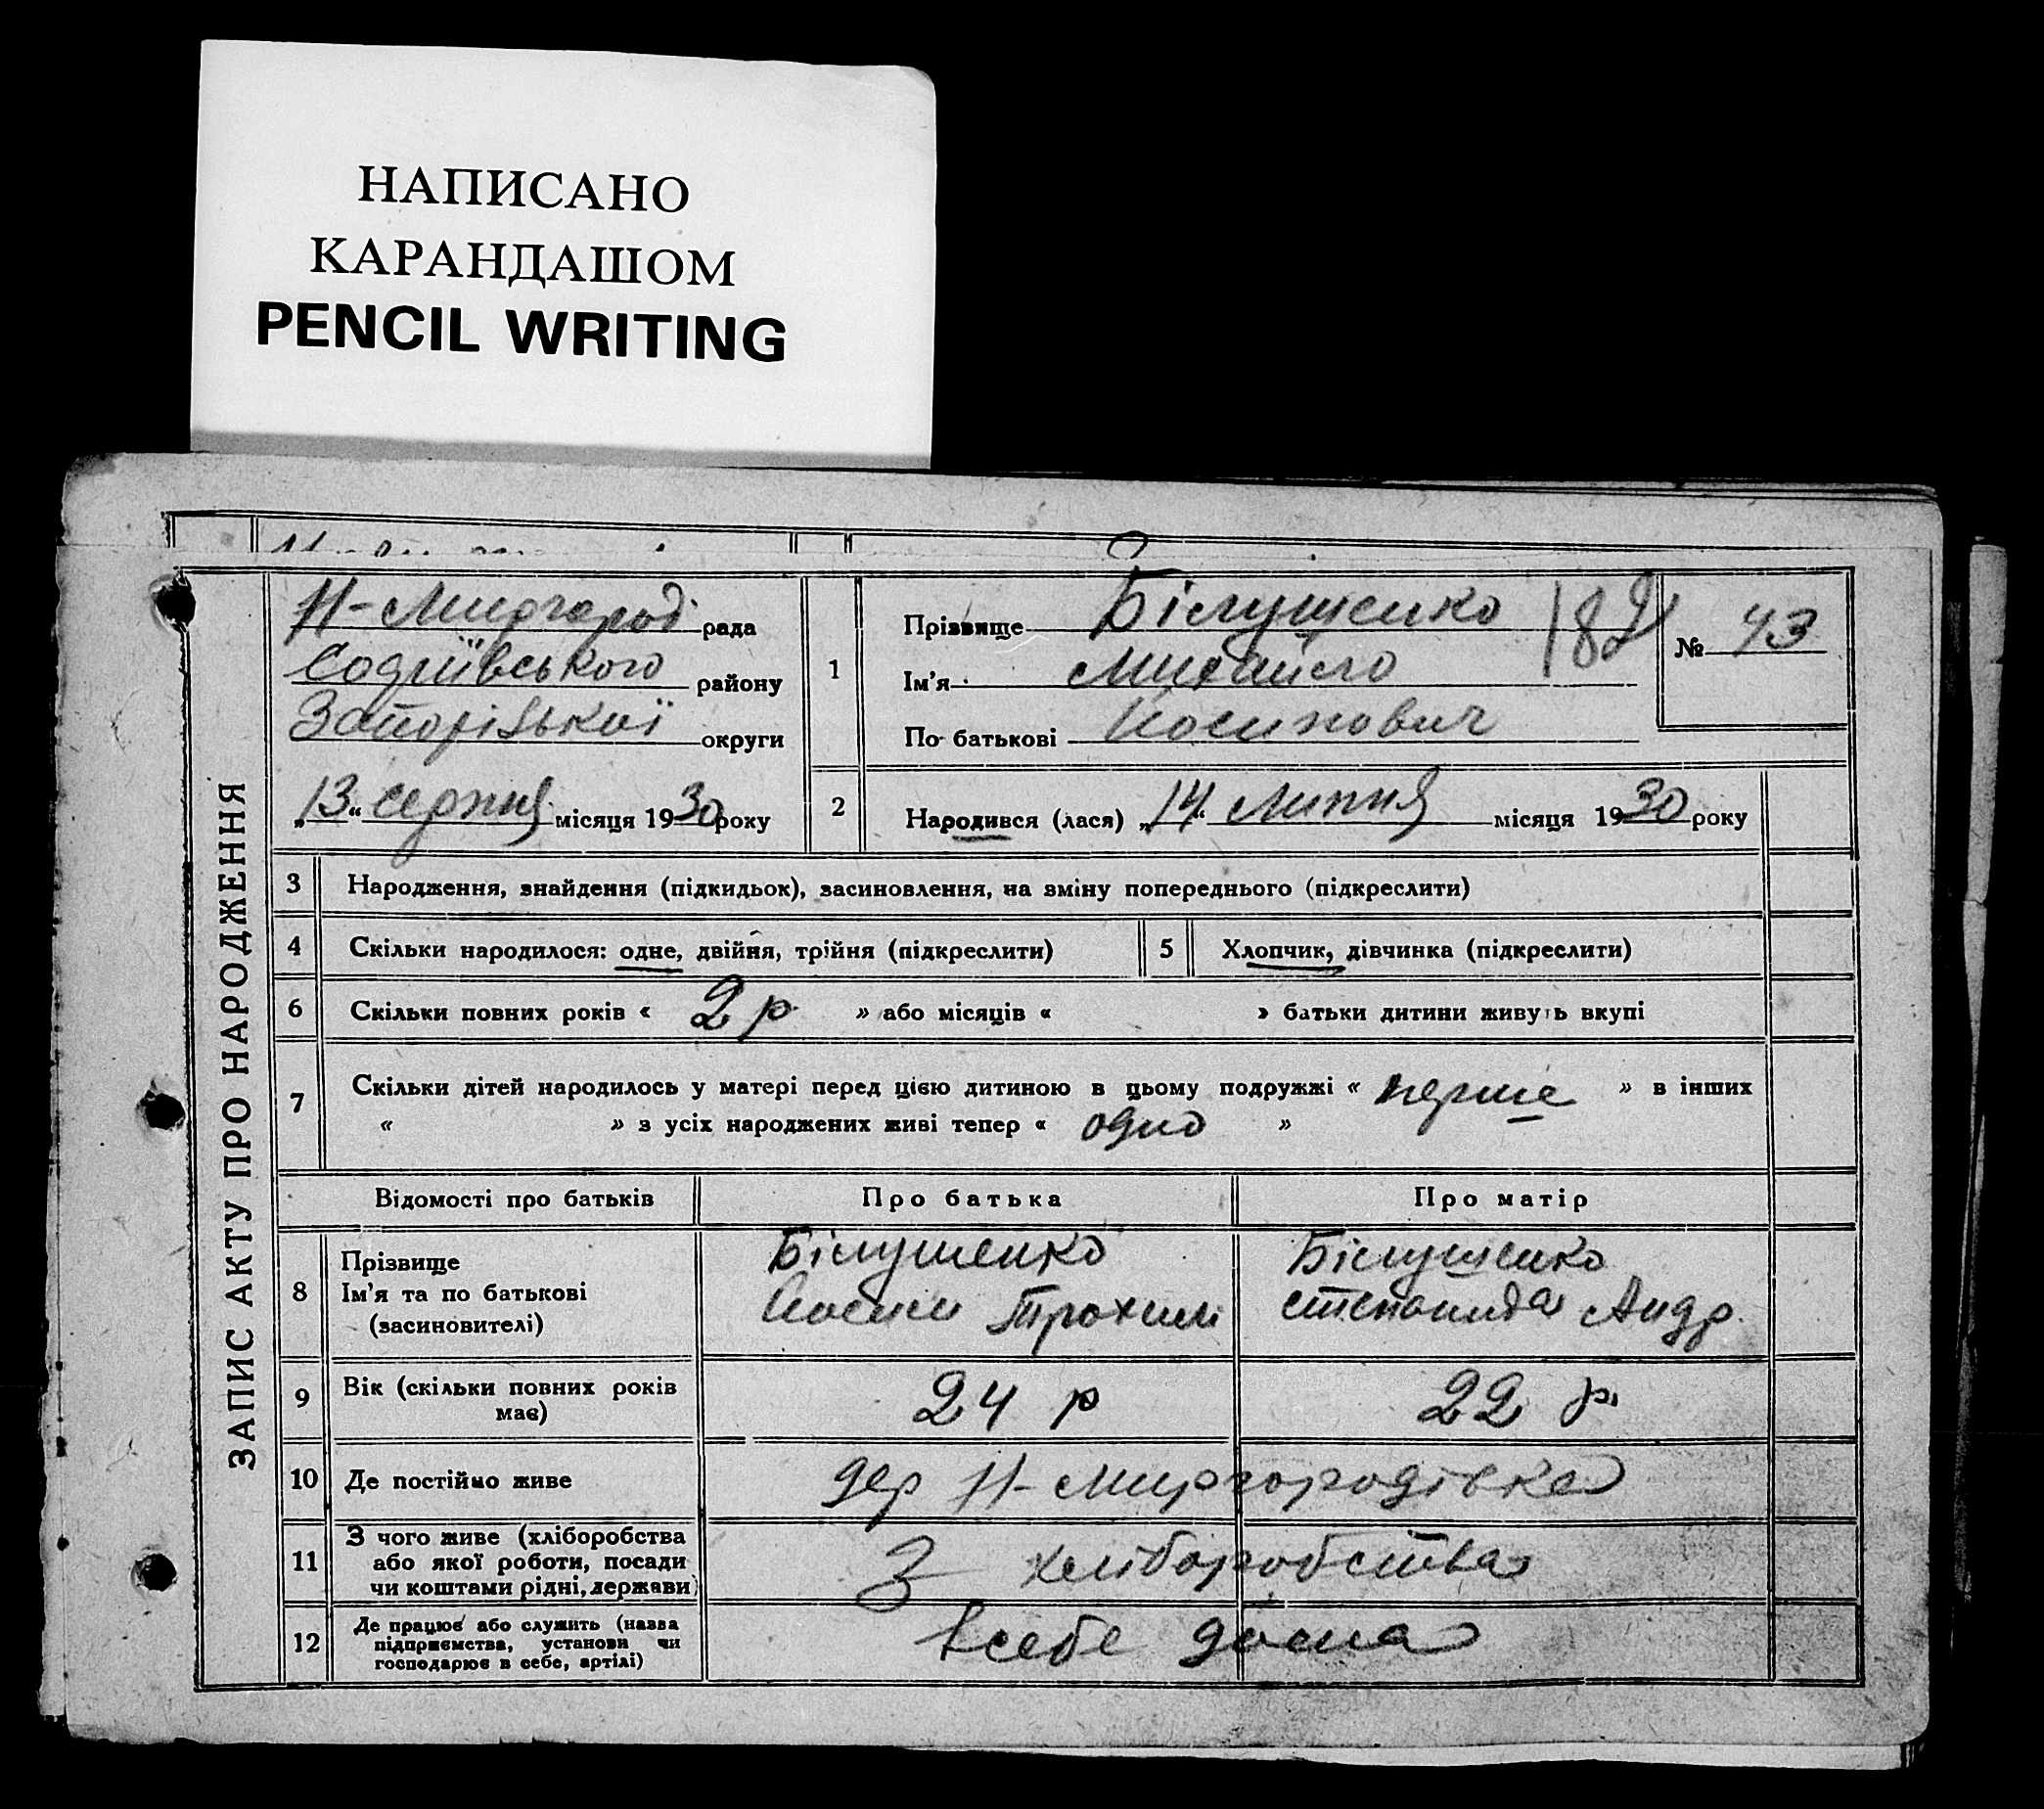 НАПИСАНО
КАРАНДАШОМ
PENCIL WRITING
ЗАПИС АКТУ ПРО НАРОДЖЕННЯ
Н-Миргород рада
Софіївського району
Запорізької округи
„13“ серпня місяця 1930 року
1
Прізвище Білушенко
Ім'я Михайло
По батькові Йосипович
№ 43
2 Народився (лася) „14“ Липня місяця 1930 року
3 Народження, знайдення (підкидьок), засиновлення, на зміну попереднього (підкреслити)
4 Скільки народилося: одне, двійня, трійня (підкреслити) 5 Хлопчик, дівчинка (підкреслити)
6 Скільки повних років « 2 р » або місяців « » батьки дитини живуть вкупі
7 Скільки дітей народилось у матері перед цією дитиною в цьому подружжі « перше » в інших
« » з усіх народжених живі тепер « одно »
Відомості про батьків Про батька Про матір
8 Прізвище
Ім'я та по батькові
(засиновителі)
Білушенко
Йосип Трохим
Білушенко
Степанида Андр.
9 Вік (скільки повних років
має)
24 р 22 р.
10 Де постійно живе дер Н-Миргородівка
11 З чого живе (хліборобства
або якої роботи, посади
чи коштами рідні, держави)
З хліборобства
12 Де працює або служить (назва
підприємства, установи чи
господарює в себе, артілі)
в себе дома